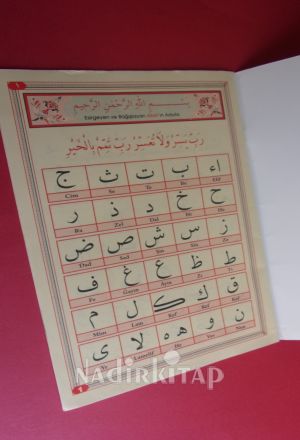 ١
بِسْــمِ اللّٰهِ الرَّحْمٰنِ الرَّحِيمِ
Esirgeyen ve Bağışlayan Allah'ın Adıyla
رَبِّ يَسِّرْ وَلَا تُعَسِّرْ رَبِّ تَمِّمْ بِالْخَيْرِ
اء ب ت ث ج
Elif Be Te Se Cim
ح خ د ذ ر
Ha Hı Dal Zel Ra
ز س ش ص ض
Ze Sin Şın Sad Dad
ط ظ ع غ ف
Tı Zı Ayn Gayn Fe
ق ك ل م
Kaf Kef Kef Lam Mim
ن و ه لا ى
Nun Vav He Lamelif Ye
1
NADİRKİTAP